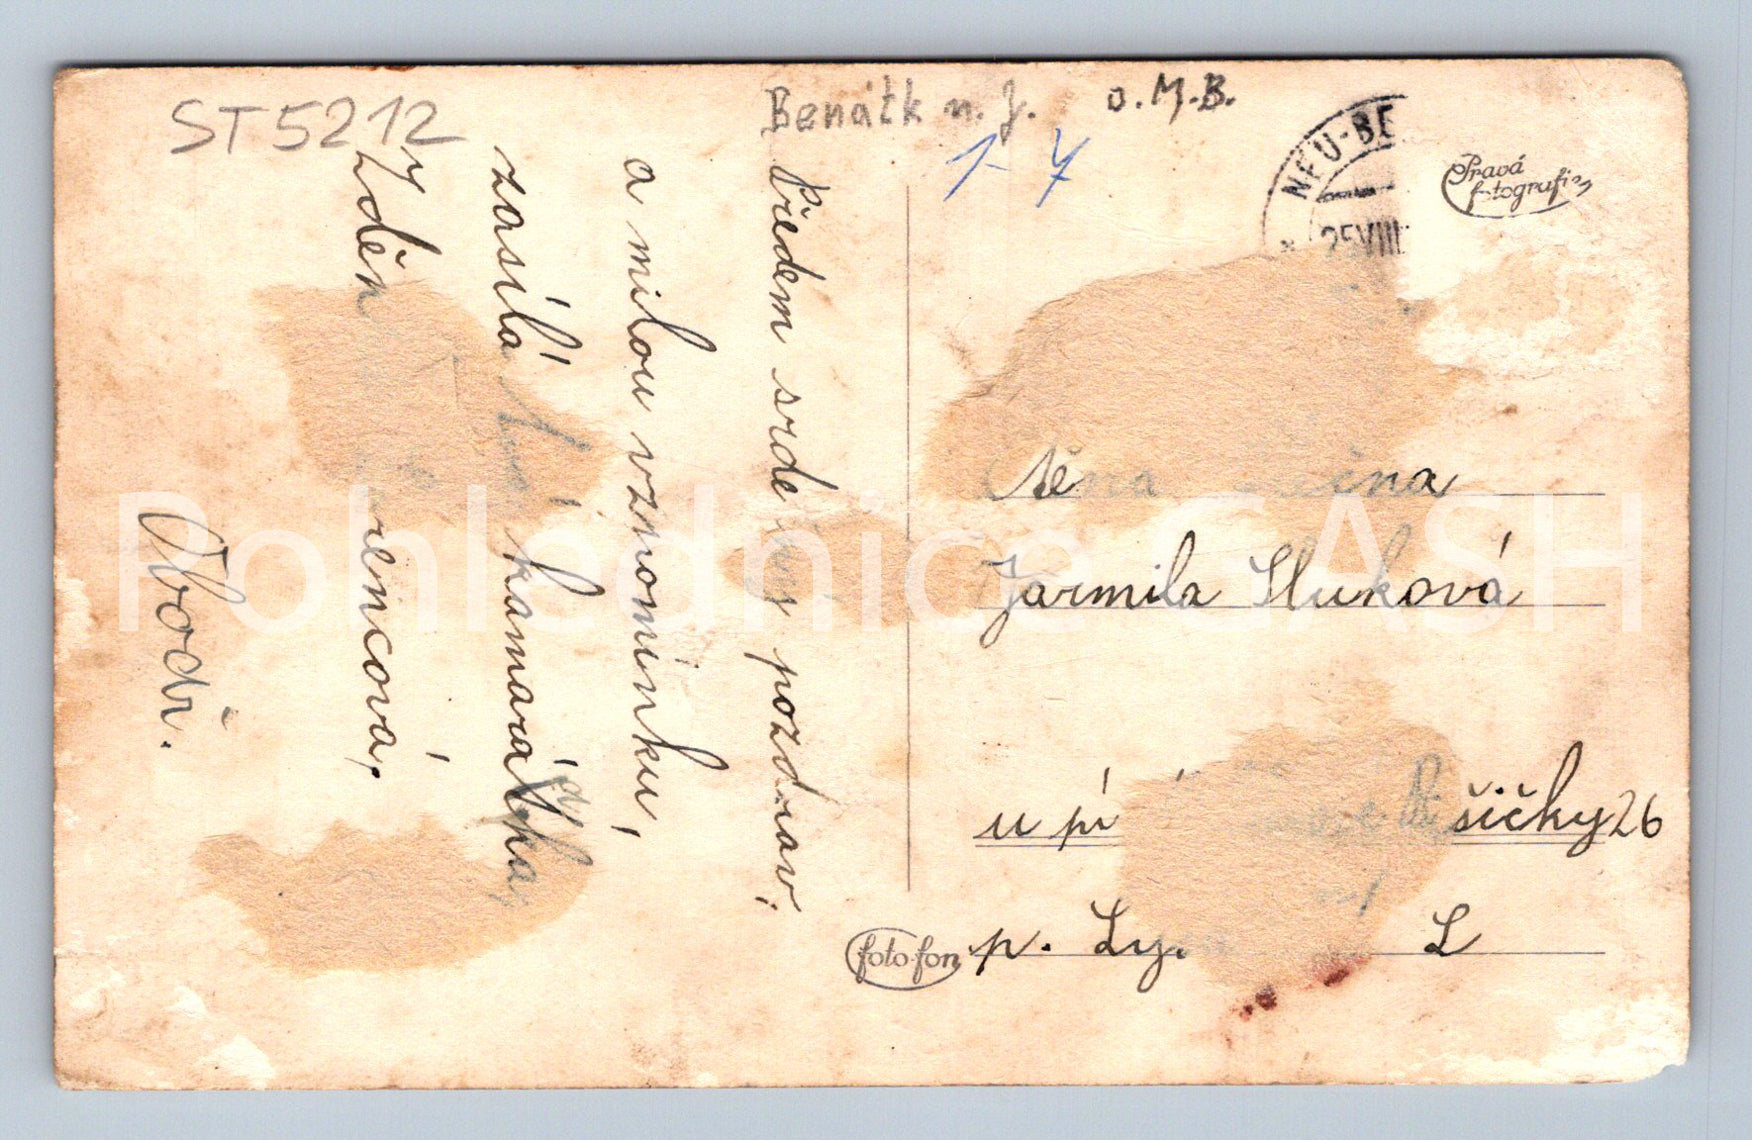 ST 5212
Benátk n. J. o. M.B.
1- 4
NEU-BE
25 VIII
Pravá
fotografie
Předem srdečný pozdrav
a milou vznomínku,
zasílá kamarádka,
Zdeň rencová,
Obodr.
těna čína
Jarmila Sluková
u pí šičky 26
p. Ly. L
foto-fon
Pohlednice GASH